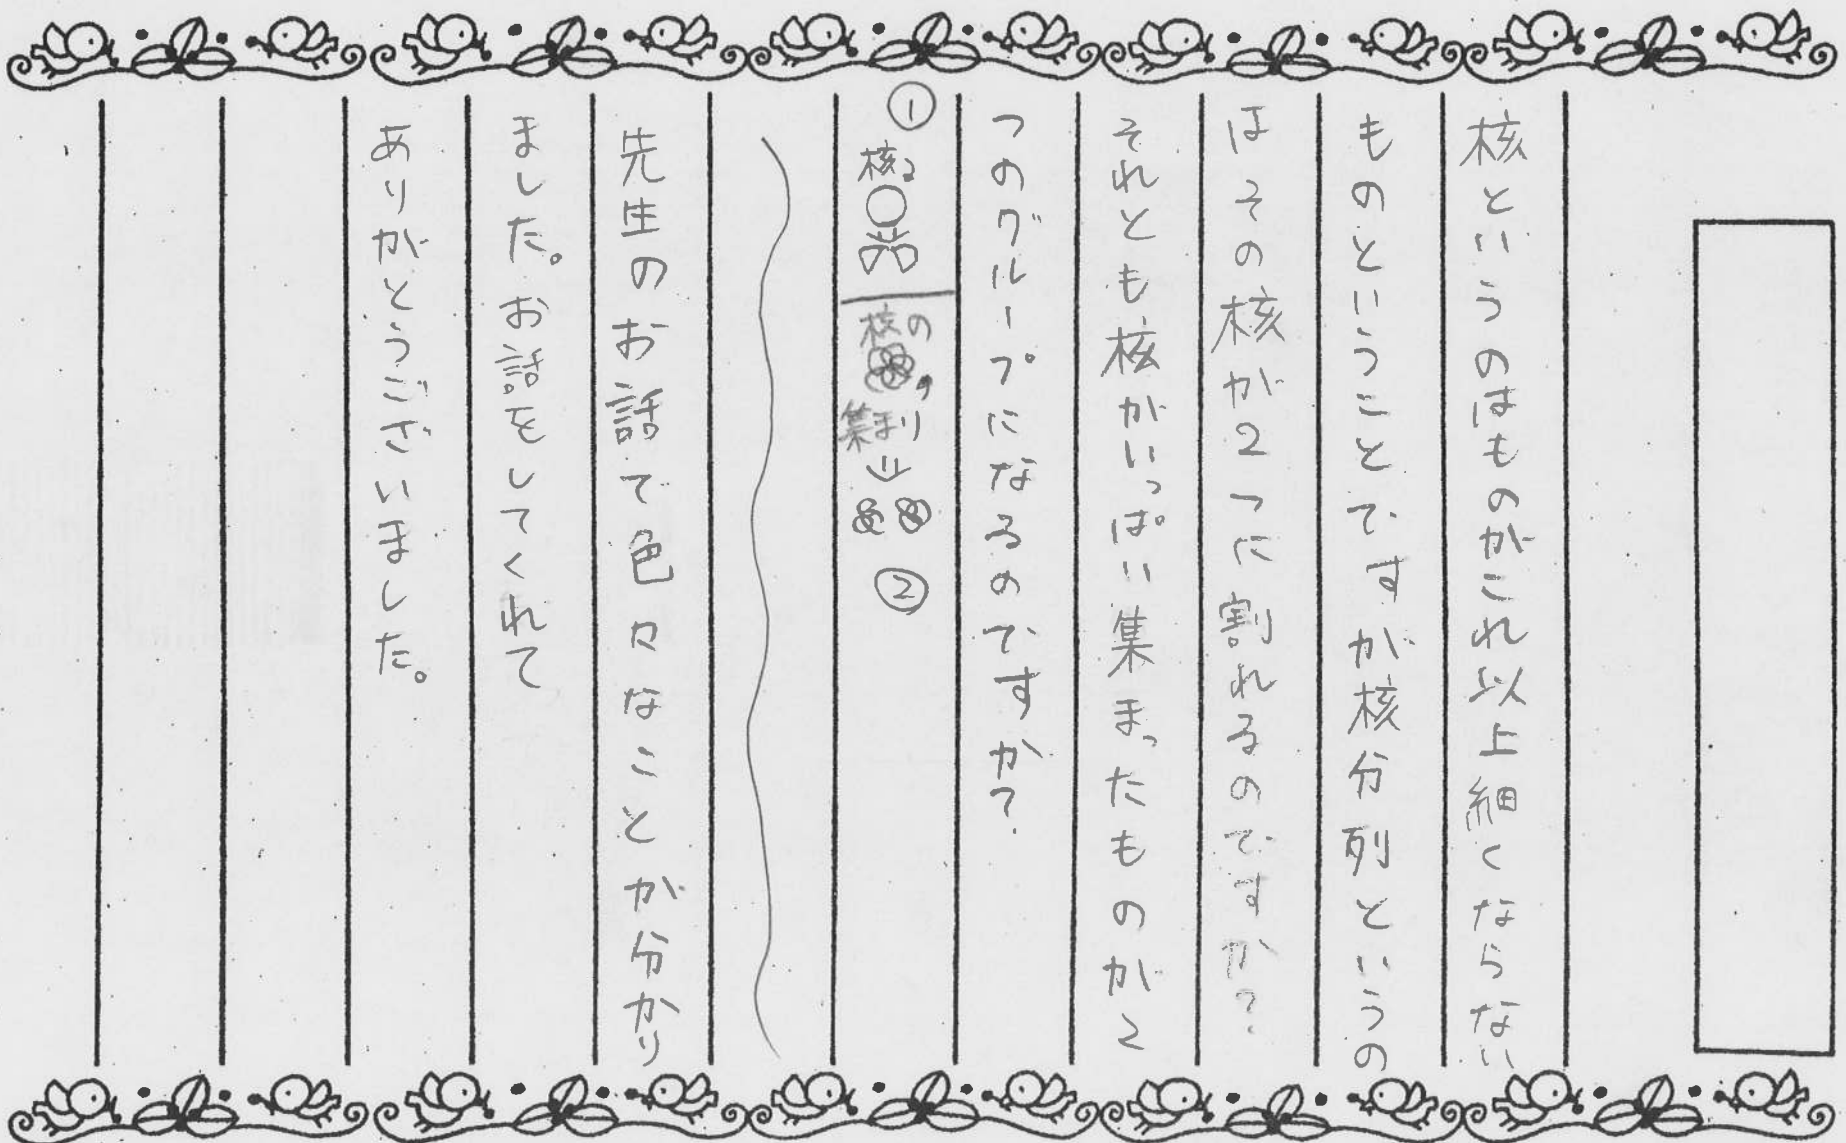 核というのはものがこれ以上細くならない
ものということですが核分列というの
はその核が2つに割れるのですか?
それとも核がいっぱい集まったものが2
つのグループになるのですか?
①
核
核の
集まり
②
先生のお話で色々なことが分かり
ました。お話をしてくれて
ありがとうございました。